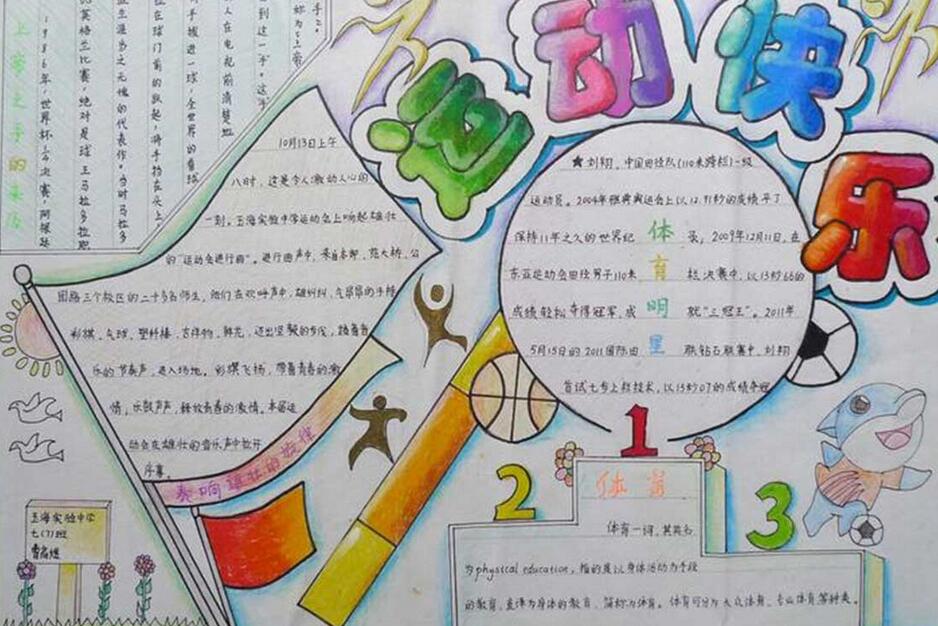 运动快乐
上帝之手的来历
1986年,世界杯1/4决赛,阿根廷
英格兰比赛,绝对是球王马拉多拉职
生涯当之无愧的代表作。当时马拉多
在球门前的跃起,将手抬在头上,
手拨进一球,全世界的看球
大在电视前清楚地
到这一手。这
10月13日上午
八时,这是令人激动人心的
一刻。玉海实验中学运动会上响起雄壮
的“运动会进行曲”。进行曲声中,来自本部、范大桥、公
园路三个校区的二十多名师生,他们在欢呼声中,雄纠纠,气昂昂的手持
彩棋、气球、塑料棒、吉祥物、鲜花,迈出坚毅的步伐,踏着音
乐的节奏声,进入场地。彩旗飞扬,带着青春的激
情,乐鼓声声,释放青春的激情。本届运
动会在雄壮的音乐声中拉开
序幕。
奏响雄壮的旋律
玉海实验中学
七(7)班
体育明星
★刘翔,中国田径队(110米跨栏)一级
运动员。2004年雅典奥运会上以12.91秒的成绩平了
保持11年之久的世界纪录,2009年12月11日,在
东亚运动会田径男子110米栏决赛中,以13秒66的
成绩轻松夺得冠军,成就“三冠王”。2011年
5月15日的2011国际田联钻石联赛中,刘翔
首试七步上栏技术,以13秒07的成绩夺冠
1
2
3
体育
体育一词,其英名
为physical education,指的是以身体活动为手段
的教育,直译为身体的教育,简称为体育。体育可分为大众体育、专业体育等种类。